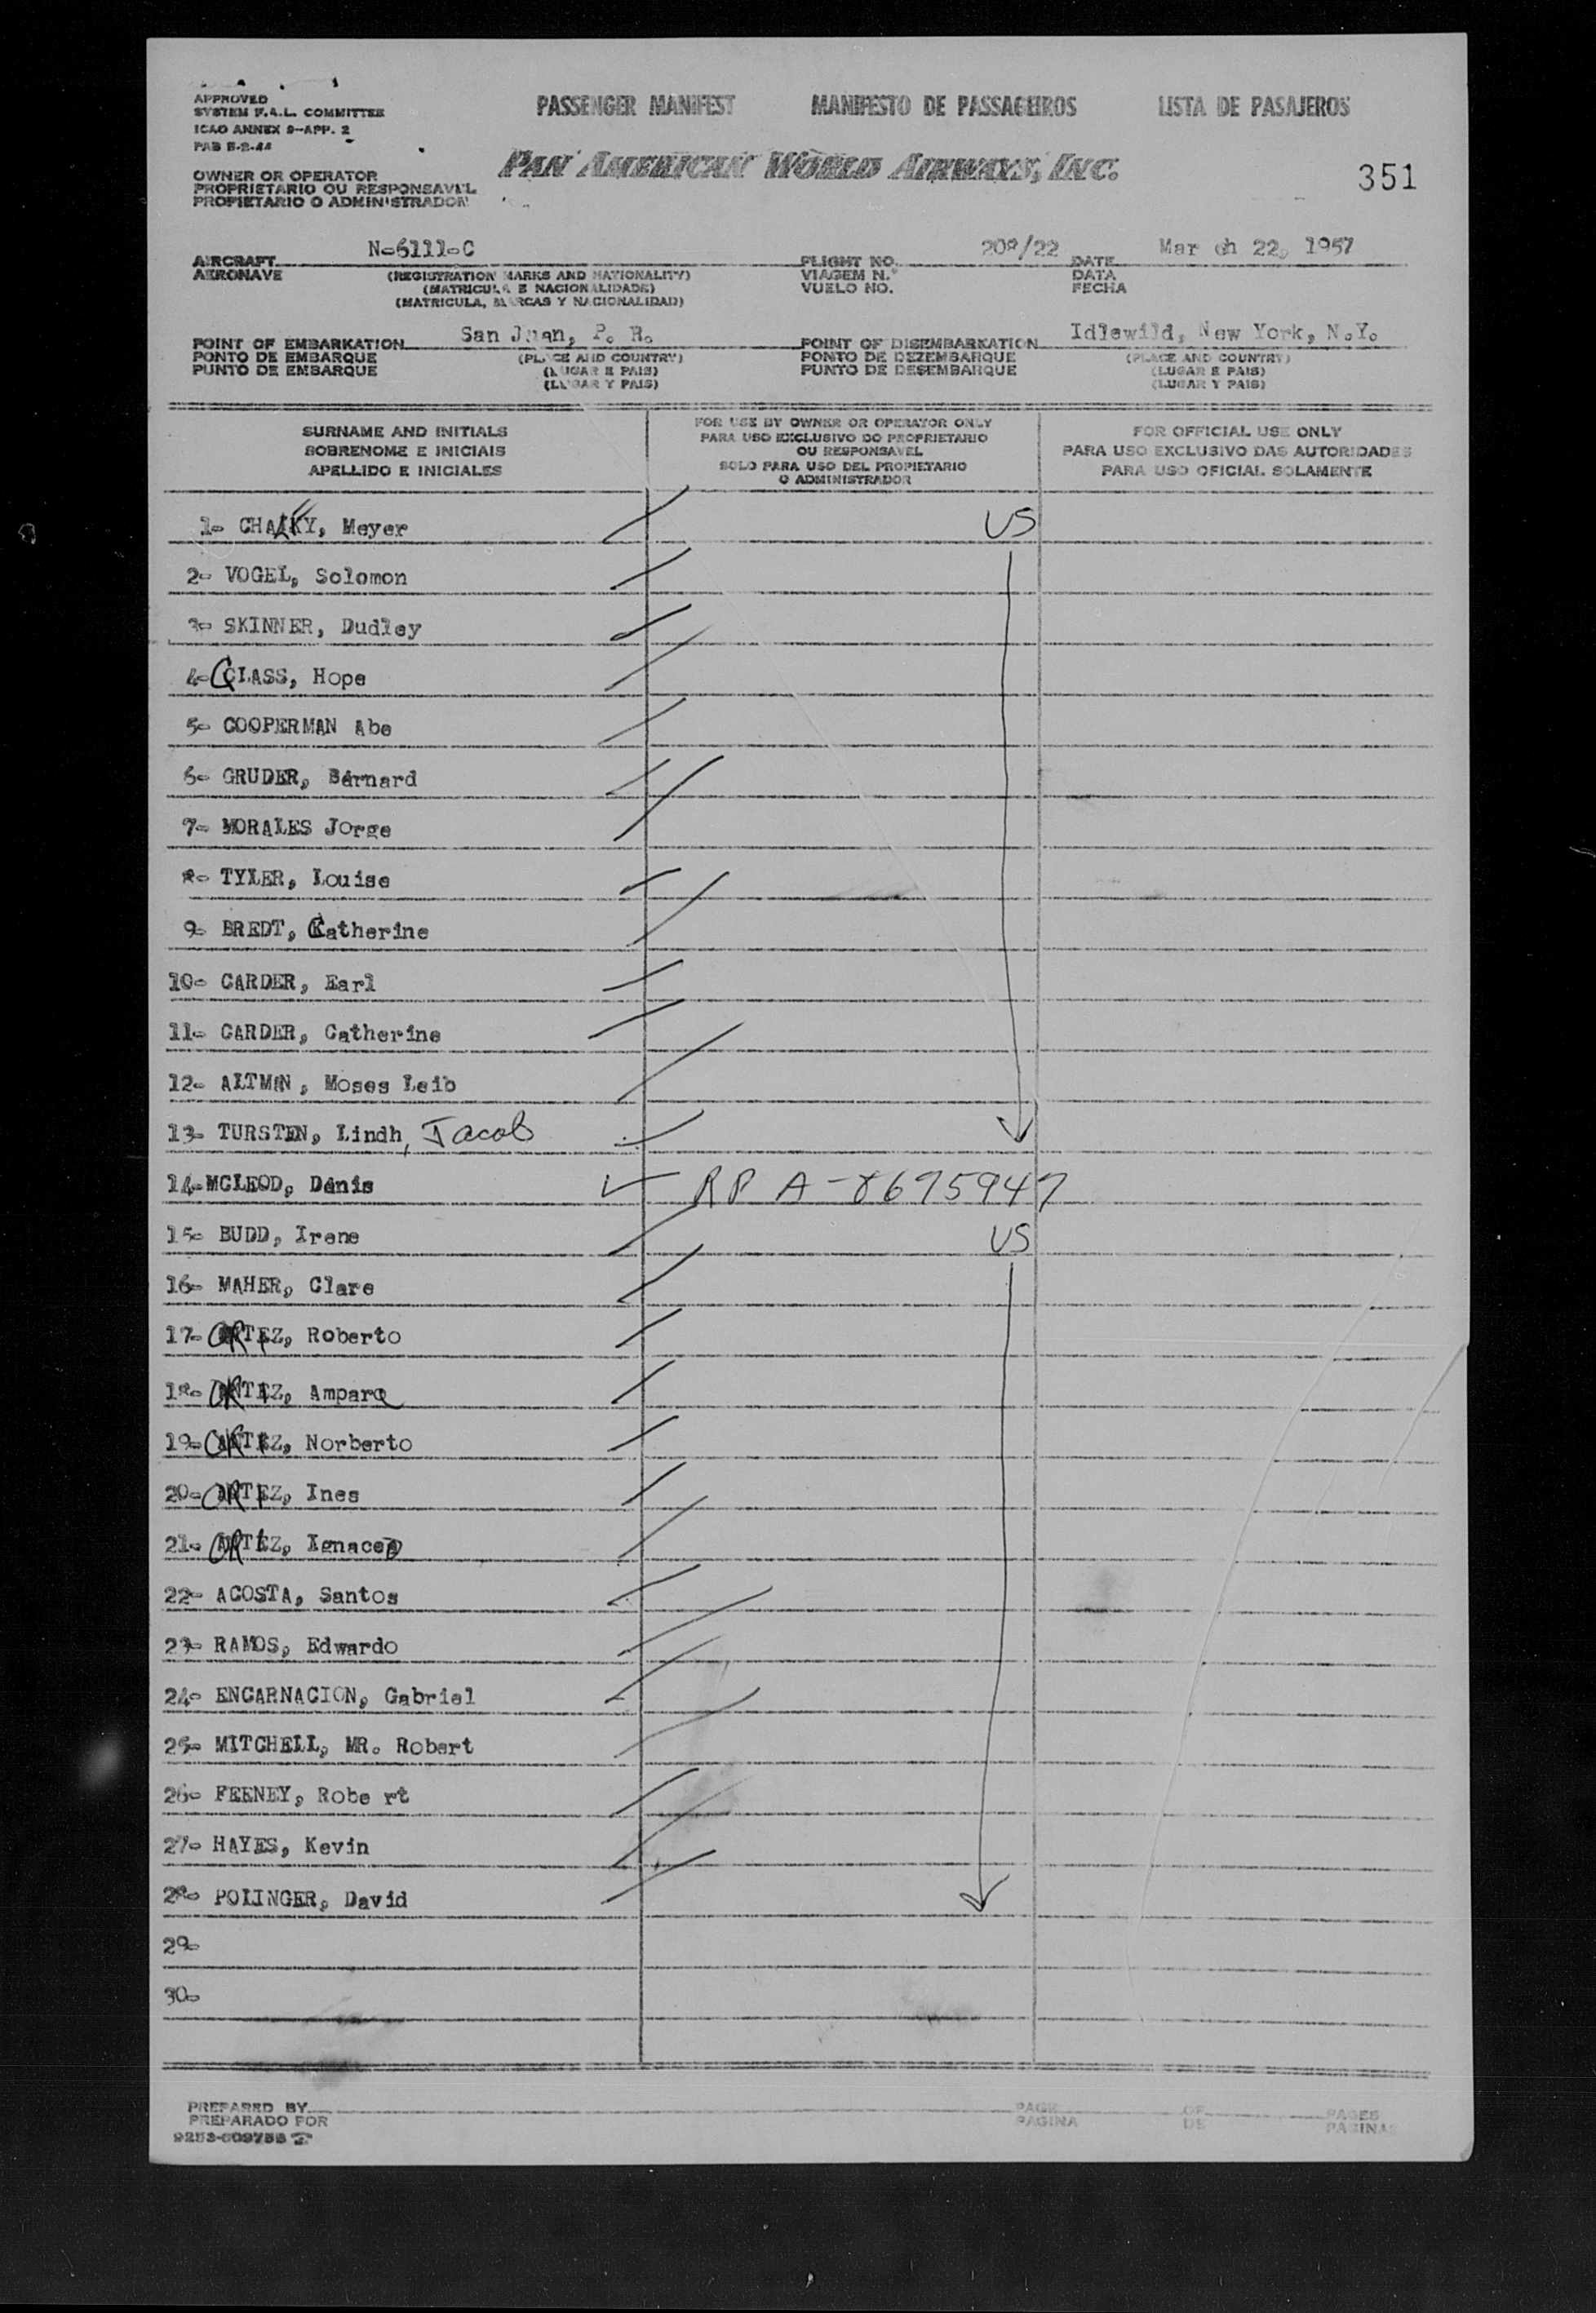 APPROVED
SYSTEM F.A.L. COMMITTEE
ICAO ANNEX 9-APP. 2
PAB 5-2-44
PASSENGER MANIFEST MANIFESTO DE PASSAGEIROS LISTA DE PASAJEROS
PAN AMERICAN WORLD AIRWAYS, INC.
351
OWNER OR OPERATOR
PROPRIETARIO OU RESPONSAVEL
PROPIETARIO O ADMINISTRADOR
AIRCRAFT N-6111-C FLIGHT NO. 208/22 DATE March 22, 1957
AERONAVE (REGISTRATION MARKS AND NATIONALITY) VIAGEM N.° DATA
(MATRICULA E NACIONALIDADE) VUELO NO. FECHA
(MATRICULA, MARCAS Y NACIONALIDAD)
POINT OF EMBARKATION San Juan, P. R. POINT OF DISEMBARKATION Idlewild, New York, N.Y.
PONTO DE EMBARQUE (PLACE AND COUNTRY) PONTO DE DEZEMBARQUE (PLACE AND COUNTRY)
PUNTO DE EMBARQUE (LUGAR E PAIS) PUNTO DE DESEMBARQUE (LUGAR E PAIS)
(LUGAR Y PAIS) (LUGAR Y PAIS)
SURNAME AND INITIALS
SOBRENOME E INICIAIS
APELLIDO E INICIALES
FOR USE BY OWNER OR OPERATOR ONLY
PARA USO EXCLUSIVO DO PROPRIETARIO
OU RESPONSAVEL
SOLO PARA USO DEL PROPIETARIO
O ADMINISTRADOR
FOR OFFICIAL USE ONLY
PARA USO EXCLUSIVO DAS AUTORIDADES
PARA USO OFICIAL SOLAMENTE
1- Meyer US
2- VOGEL, Solomon
3- SKINNER, Dudley
4- GLASS, Hope
5- COOPERMAN Abe
6- GRUDER, Bernard
7- MORALES Jorge
8- TYLER, Louise
9- BREDT, Catherine
10- CARDER, Earl
11- CARDER, Catherine
12- ALTMAN, Moses Leib
13- TURSTEN, Lindh, Jacob
14- MCLEOD, Denis RP A-8675947
15- BUDD, Irene US
16- MAHER, Clare
17- ORTIZ, Roberto
18- ORTIZ, Ampara
19- ORTIZ, Norberto
20- ORTIZ, Ines
21- ORTIZ, Ignaceo
22- ACOSTA, Santos
23- RAMOS, Edwardo
24- ENCARNACION, Gabriel
25- MITCHELL, MR. Robert
26- FEENEY, Robe rt
27- HAYES, Kevin
28- POLINGER, David
29-
30-
PREPARED BY PAGE OF PAGES
PREPARADO FOR PAGINA DE PAGINAS